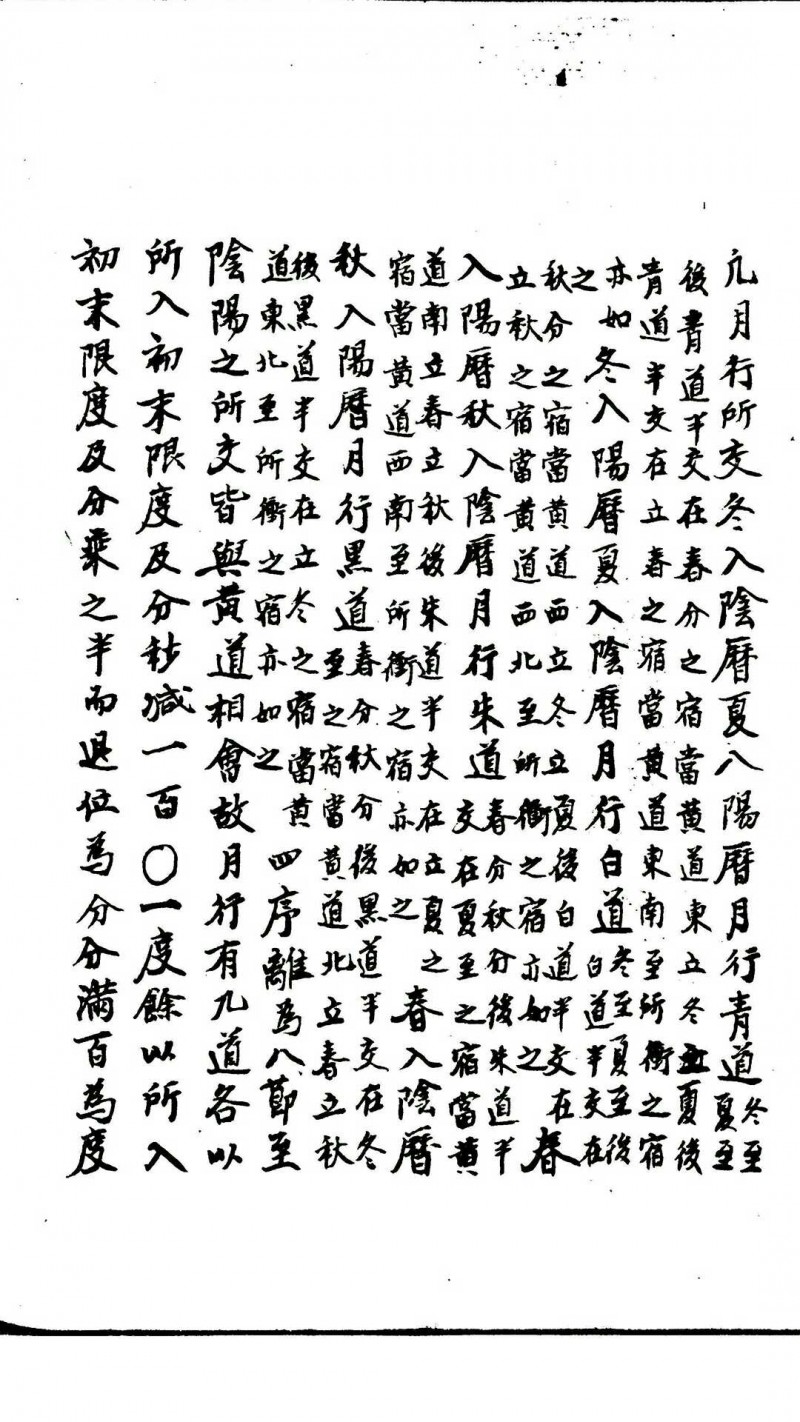 凡月行所交冬入陰曆夏八陽曆月行青道冬至夏至
後青道半交在春分之宿當黃道東立冬立夏後
青道半交在立春之宿當黃道東南至所衝之宿
亦如之冬入陽曆夏入陰曆月行白道冬至夏至後白道半交在
秋分之宿當黃道西立冬立夏後白道半交在
立秋之宿當黃道西北至所衝之宿亦如之春
入陽曆秋入陰曆月行朱道春分秋分後朱道半交在夏至之宿當黃
道南立春立秋後朱道半交在立夏之宿當黃道西南至所衝之宿亦如之春入陰曆
秋入陽曆月行黑道春分秋分後黑道半交在冬至之宿當黃道北立春立秋
後黑道半交在立冬之宿當黃道東北至所衝之宿亦如之四序離為八節至
陰陽之所交皆與黃道相會故月行有九道各以
所入初末限度及分秒減一百〇一度餘以所入
初末限度及分乘之半而退位為分分滿百為度